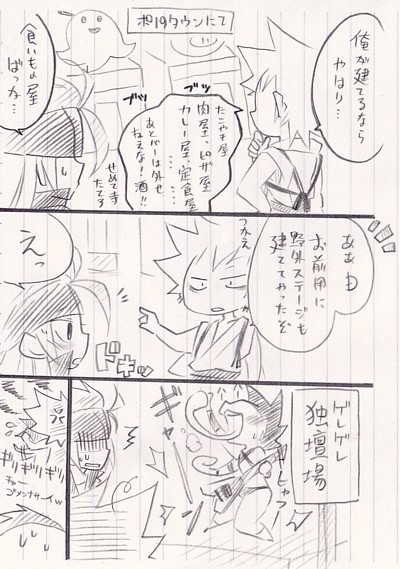 ポpqタウンにて
俺が建てるなら
やはり…
ブッ
ブツ
たこやき屋
肉屋、ピザ屋
カレー屋、定食屋
……
あとバーは外せ
ねえな!酒!!
食いもの屋
ばっか…
せめて寺
たてろ
ああw
お前用に
野外ステージも
建ててやったぞ
つかえ
えっ
ドキッ
ゲレゲレ
独壇場
ギリギリ
ギリ
ゴメンナサーイw